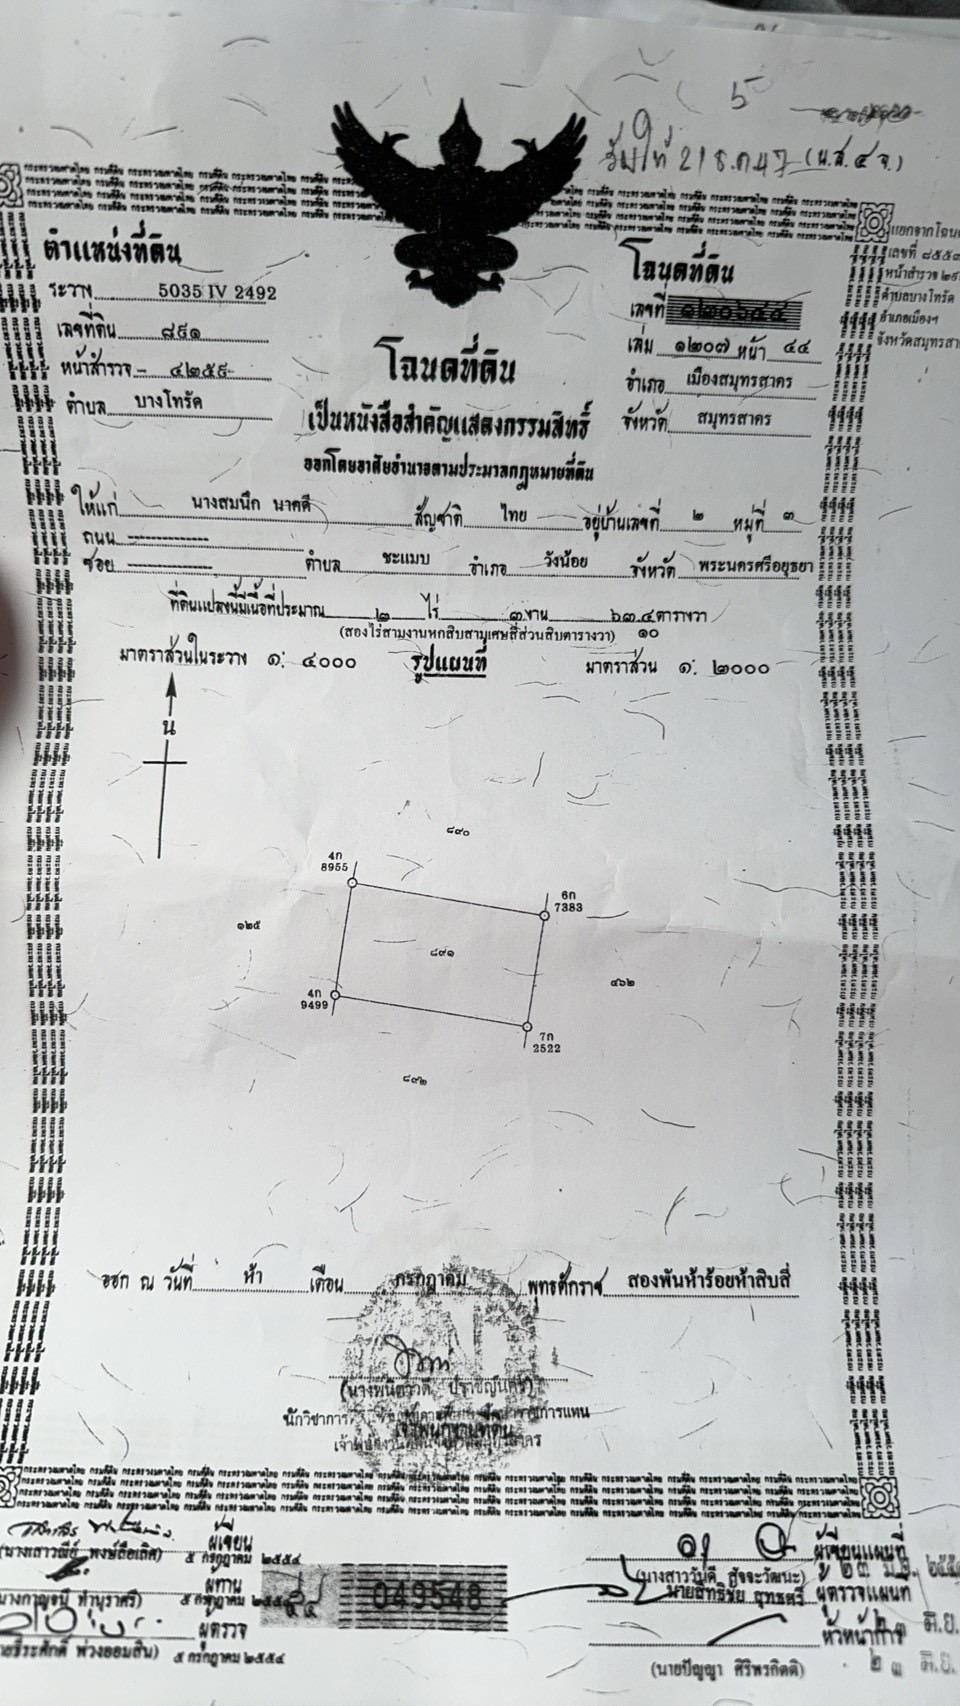 ๖
วันที่ 21 ธ.ค 47 (น.ส.๔ จ.)
แยกจากโฉนด
เลขที่ ๘๕๕๓
หน้าสำรวจ
ตำบลบางโทรัด
อำเภอเมืองฯ
จังหวัดสมุทรสา
ตำแหน่งที่ดิน
ระวาง 5035 IV 2492
เลขที่ดิน ๘๙๑
หน้าสำรวจ ๔๒๕๙
ตำบล บางโทรัด
โฉนดที่ดิน
เลขที่ ๑๒๐๖๔๔
เล่ม ๑๒๐๗ หน้า ๔๔
อำเภอ เมืองสมุทรสาคร
จังหวัด สมุทรสาคร
โฉนดที่ดิน
เป็นหนังสือสำคัญแสดงกรรมสิทธิ์
ออกโดยอาศัยอำนาจตามประมวลกฎหมายที่ดิน
ให้แก่ นางสมนึก นาคดี สัญชาติ ไทย อยู่บ้านเลขที่ ๒ หมู่ที่ ๓
ถนน --------------
ซอย -------------- ตำบล ชะแมบ อำเภอ วังน้อย จังหวัด พระนครศรีอยุธยา
ที่ดินแปลงนี้มีเนื้อที่ประมาณ ๒ ไร่ ๓ งาน ๖๓.๔ ตารางวา
(สองไร่สามงานหกสิบสามเศษสี่ส่วนสิบตารางวา) ๑๐
มาตราส่วนในระวาง ๑: ๔๐๐๐ รูปแผนที่ มาตราส่วน ๑: ๒๐๐๐
น
๘๙๐
4ก
8955
6ก
7383
๑๒๕
๘๙๑
๔๖๒
4ก
9499
7ก
2522
๘๙๒
ออก ณ วันที่ ห้า เดือน กรกฎาคม พุทธศักราช สองพันห้าร้อยห้าสิบสี่
นักวิชาการ
ราชการแทน
เจ้าพนักงานที่ดิน
ผู้เขียน
(นางเสาวณีย์ พงษ์ลือเลิศ) ๕ กรกฎาคม ๒๕๕๔
ผู้ทาน
๕ กรกฎาคม ๒๕๕๔
ผู้ตรวจ
พ่วงออมสิน) ๕ กรกฎาคม ๒๕๕๔
049548
ผู้เขียนแผนที่
(นางสาววันดี สัจจะวัฒนะ)
ผู้ตรวจแผนที่
นายสิทธิชัย สุทธศรี
หัวหน้าการ
(นายปัญญา ศิริพรกิตติ)
๒๓ มิ.ย.